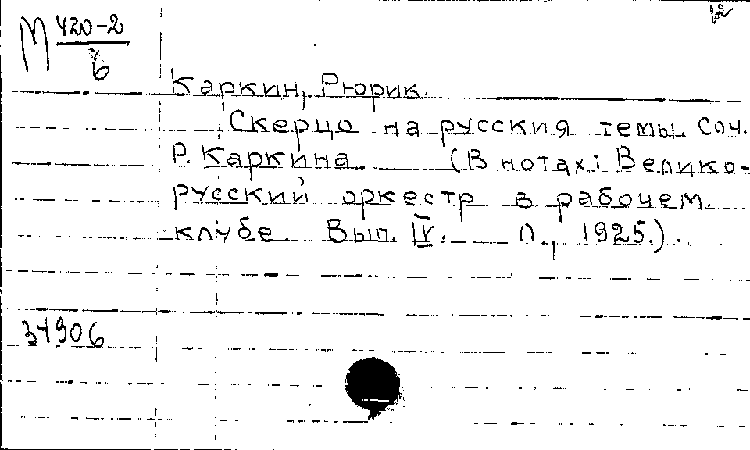 М 420-2
б
Каркин, Рюрик.
Скерцо на русския темы. Соч.
Р. Каркина. (В нотах: Велико-
русский оркестр в рабочем
клубе. Вып. IV. Л., 1925.).
34906